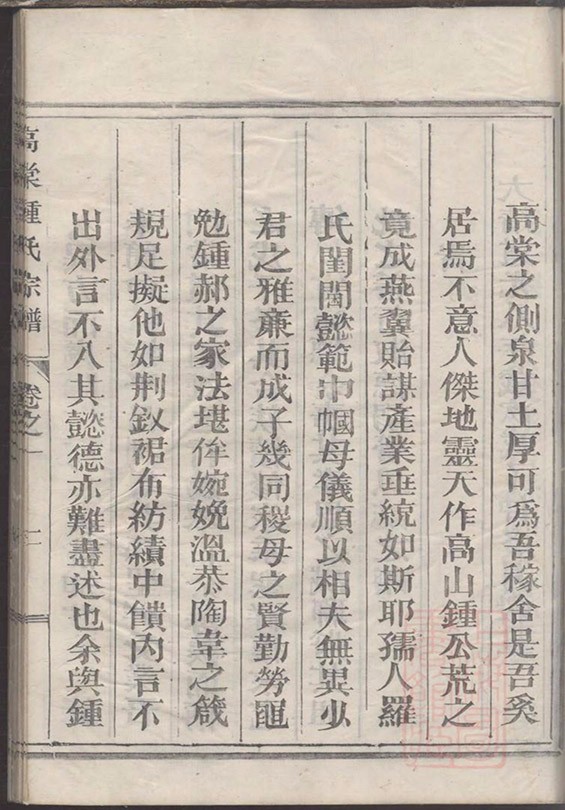 高棠之側泉甘土厚可爲吾稼舍是吾奚
居焉不意人傑地靈天作高山鍾公荒之
竟成燕翼貽謀產業垂統如斯耶孺人羅
氏閨閫懿範巾幗母儀順以相夫無異少
君之雅亷而成子幾同稷母之賢勤勞匪
勉鍾郝之家法堪侔婉娩溫恭陶韋之箴
規足擬他如荆釵裙布紡績中饋內言不
出外言不入其懿德亦難盡述也余與鍾
高棠鍾氏宗譜
卷之一